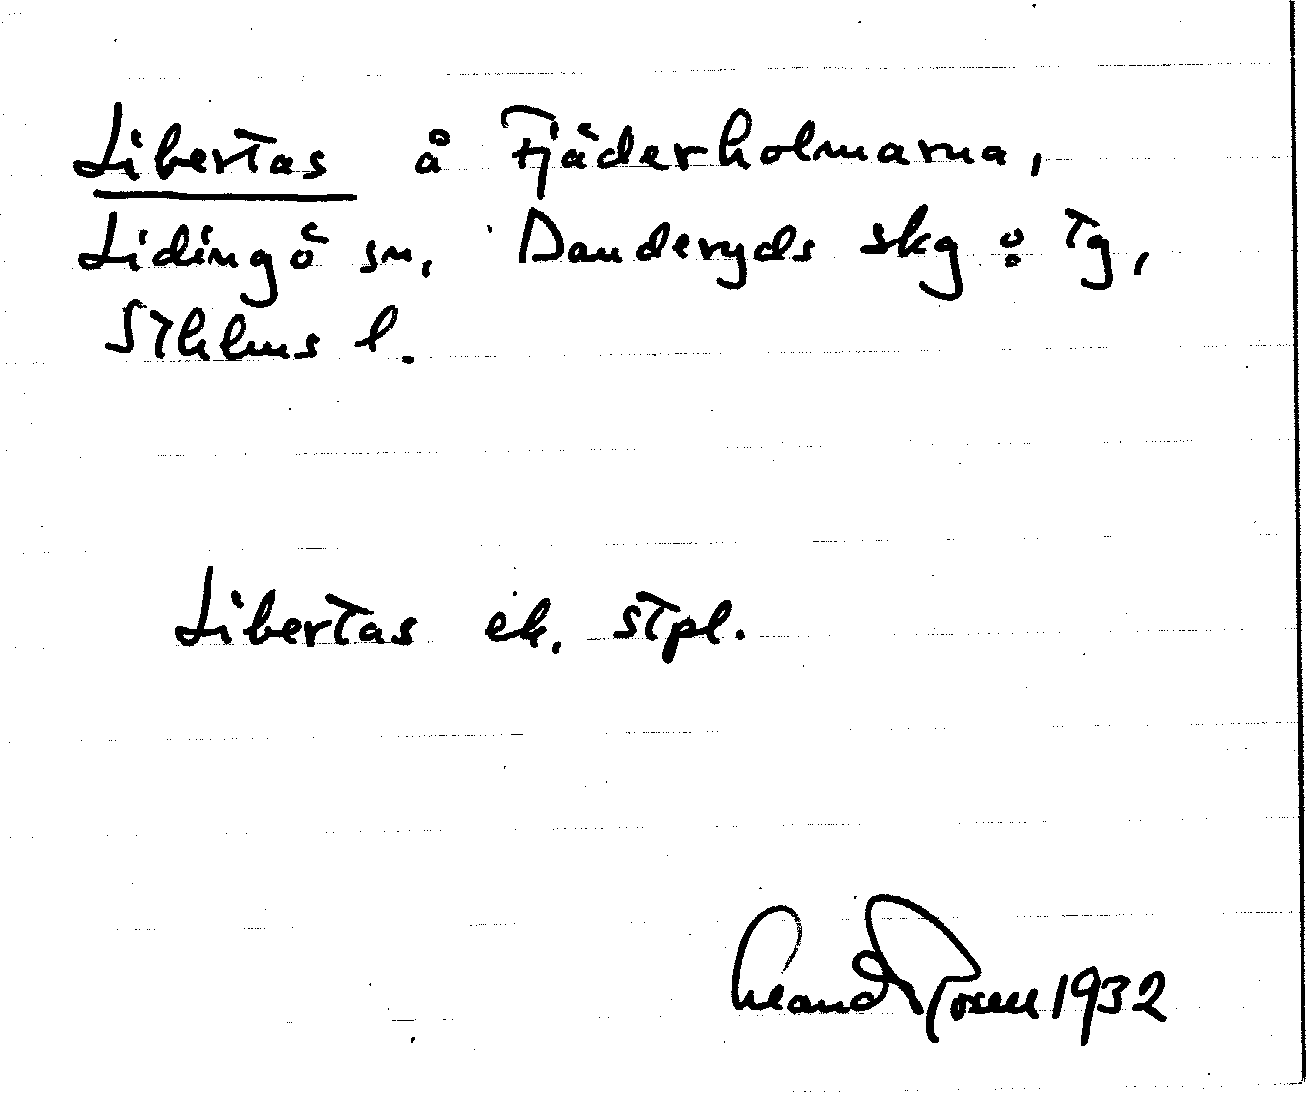 Libertas å Fjäderholmarna,
Lidingö sn, Danderyds skg o tg,
Sthlms l.
Libertas ek. stpl.
1932